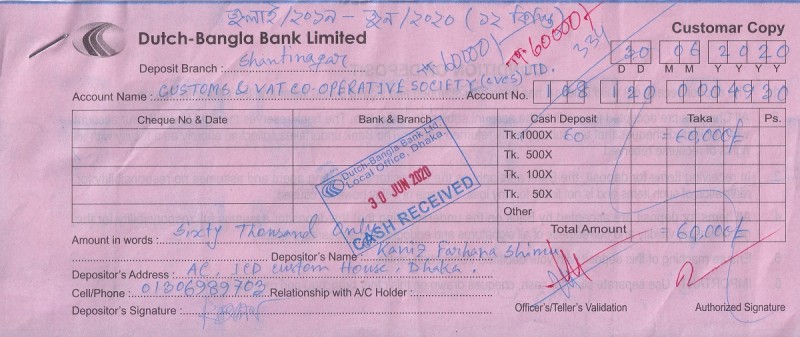 জুলাই/২০১৯ - জুন/২০২০ (১২ কিস্তি)
Dutch-Bangla Bank Limited
Customar Copy
৳ 60000/
৳ 60000/
334
30 06 2020
D D M M Y Y Y Y
Deposit Branch : Shantinagar
Account Name : CUSTOMS & VAT CO-OPERATIVE SOCIETY (CVCS) LTD. Account No. 108 120 0004930
Cheque No & Date Bank & Branch Cash Deposit Taka Ps.
Tk.1000X 60 = 60,000/-
Tk. 500X
Tk. 100X
Tk. 50X
Other
Total Amount = 60,000/-
Dutch-Bangla Bank Ltd.
Local Office, Dhaka.
30 JUN 2020
CASH RECEIVED
Amount in words : Sixty Thousand Only
Depositor's Name : Kaniz Farhana Shimu
Depositor's Address : AC, ICD Custom House, Dhaka.
Cell/Phone : 01306989703 Relationship with A/C Holder :
Depositor's Signature :
Officer's/Teller's Validation
Authorized Signature